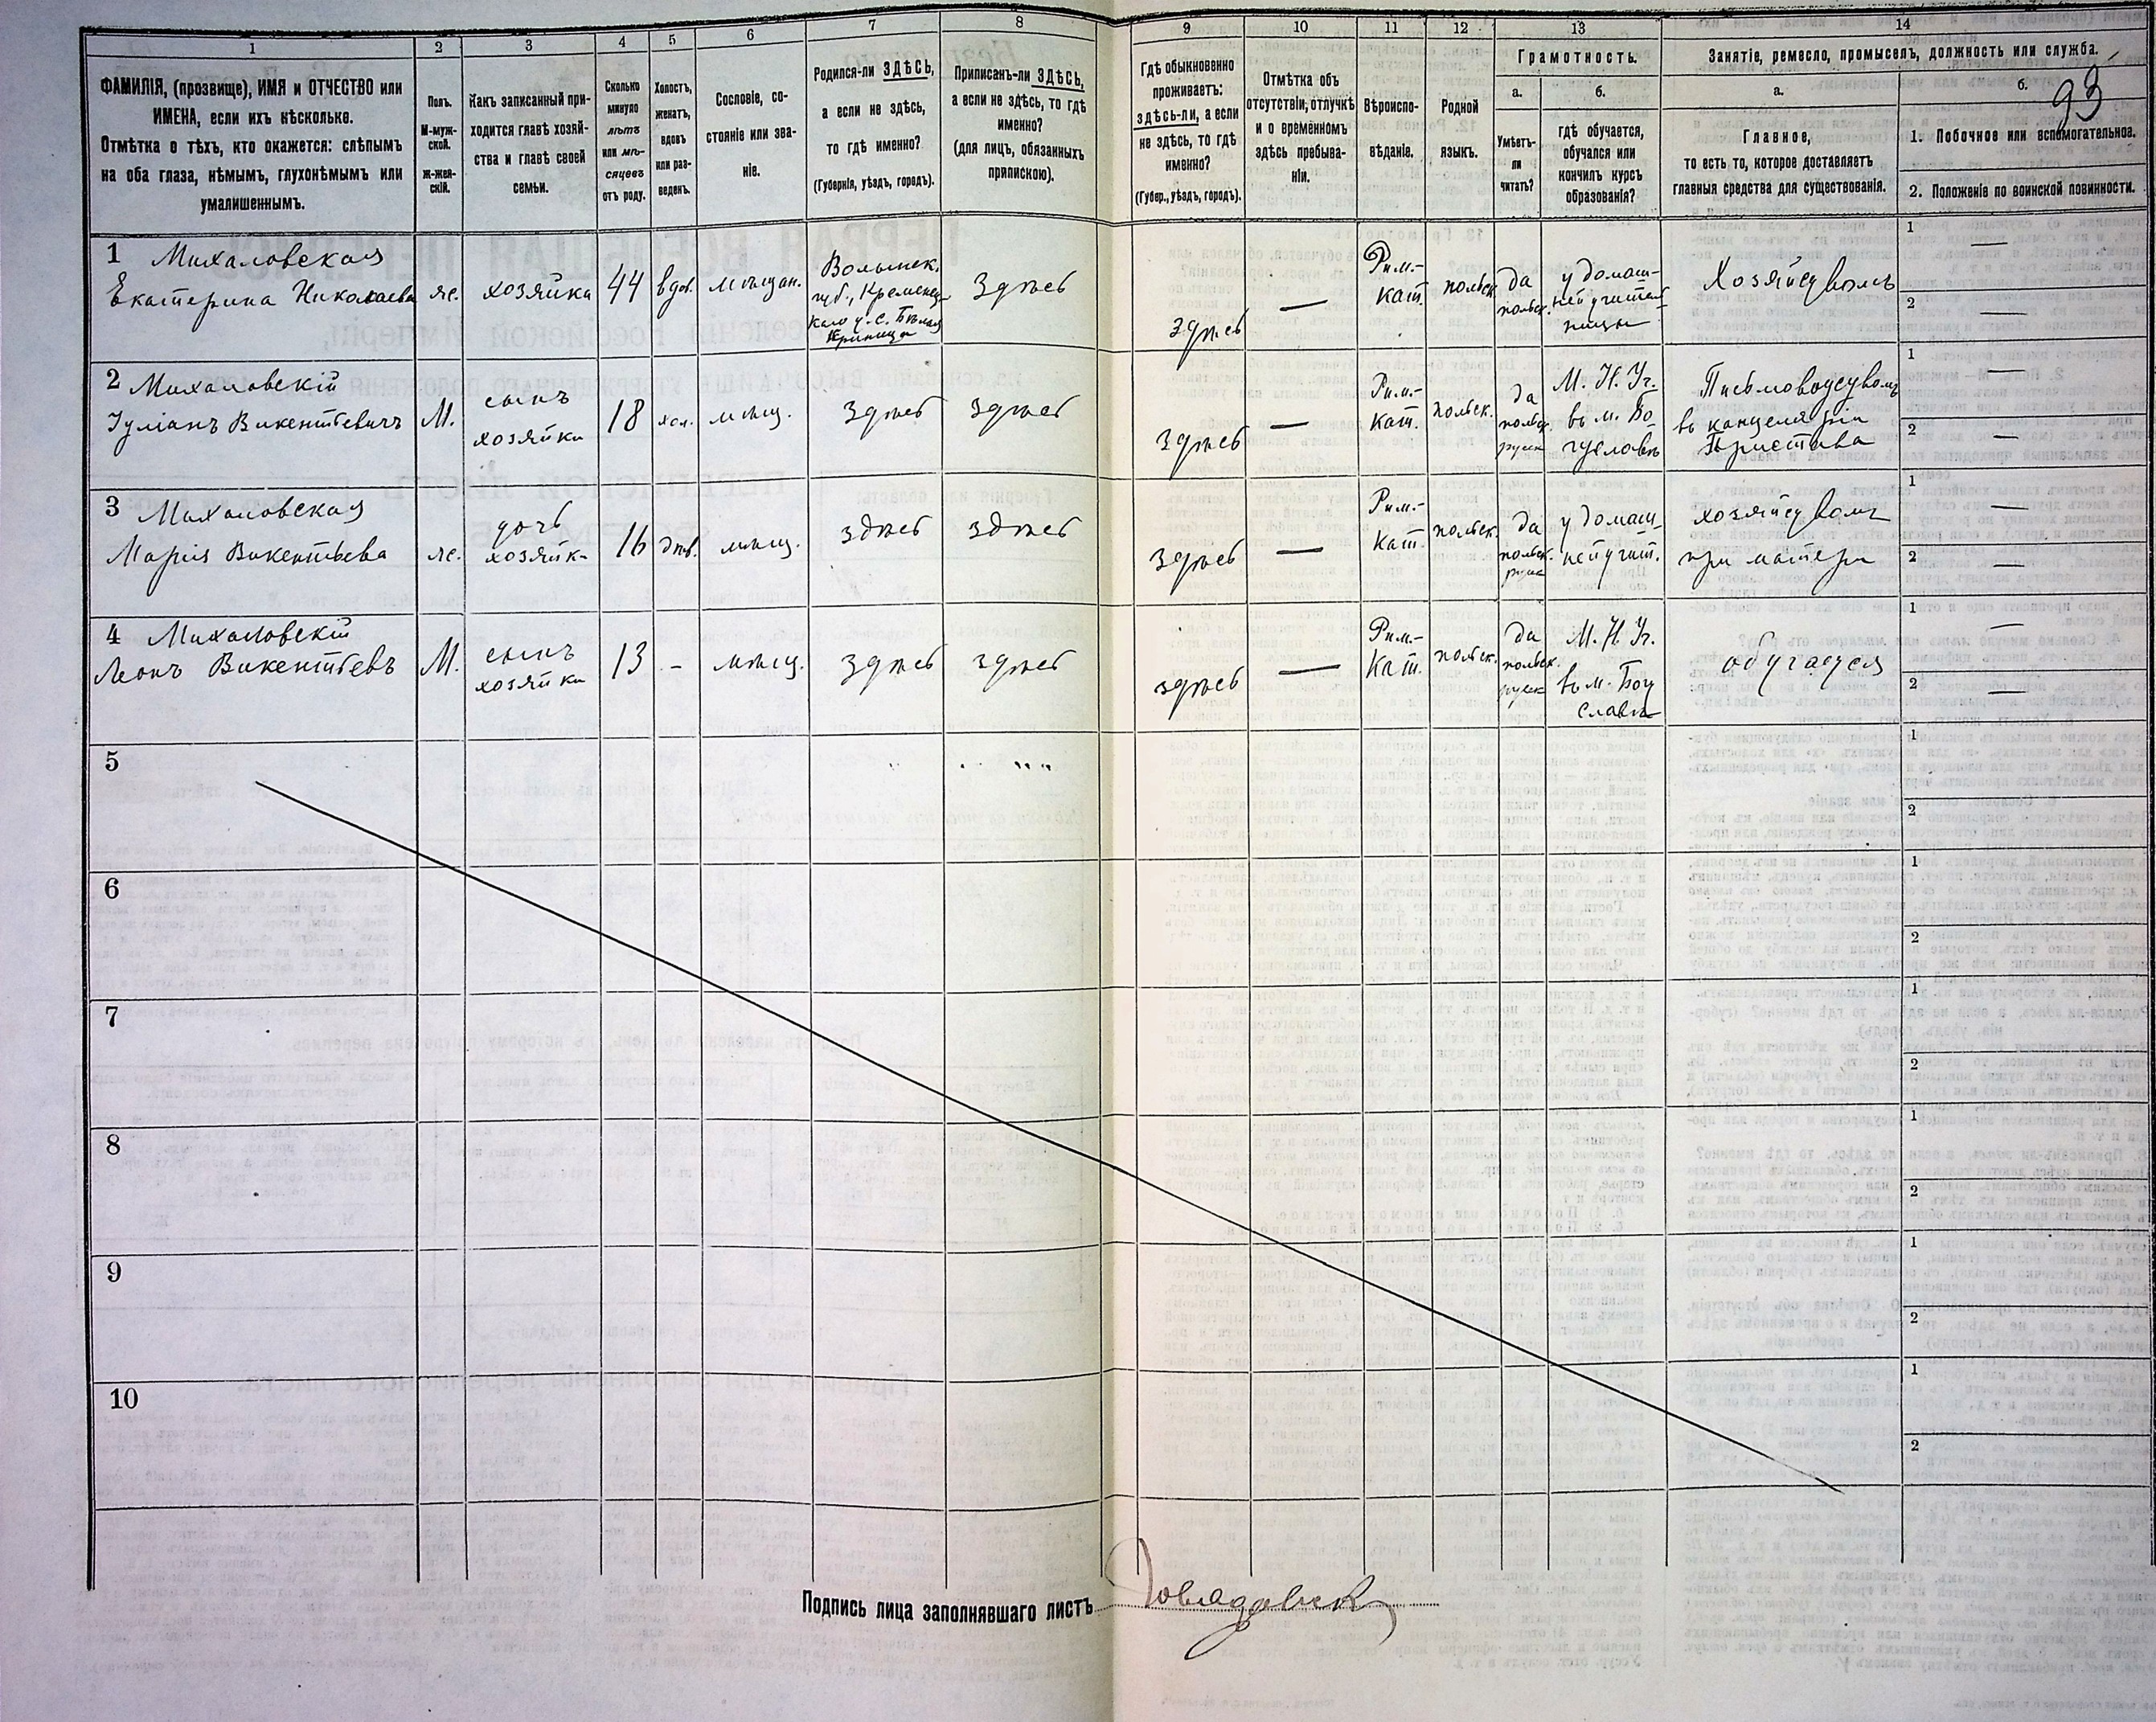 1 2 3 4 5 6 7 8 9 10 11 12 13 14
ФАМИЛІЯ, (прозвище), ИМЯ и ОТЧЕСТВО или
ИМЕНА, если ихъ нѣсколько.
Отмѣтка о тѣхъ, кто окажется: слѣпымъ
на оба глаза, нѣмымъ, глухонѣмымъ или
умалишеннымъ.
Полъ.
М-муж-
ской.
Ж-жен-
скій.
Какъ записанный при-
ходится главѣ хозяй-
ства и главѣ своей
семьи.
Сколько
минуло
лѣтъ
или мѣ-
сяцевъ
отъ роду.
Холостъ,
женатъ,
вдовъ
или раз-
веденъ.
Сословіе, со-
стояніе или зва-
ніе.
Родился-ли ЗДѢСЬ,
а если не здѣсь,
то гдѣ именно?
(Губернія, уѣздъ, городъ).
Приписанъ-ли ЗДѢСЬ,
а если не здѣсь, то гдѣ
именно?
(для лицъ, обязанныхъ
припискою).
Гдѣ обыкновенно
проживаетъ:
здѣсь-ли, а если
не здѣсь, то гдѣ
именно?
(Губер., уѣздъ, городъ).
Отмѣтка объ
отсутствіи, отлучкѣ
и о временномъ
здѣсь пребыва-
ніи.
Вѣроиспо-
вѣданіе.
Родной
языкъ.
Грамотность.
а.
Умѣетъ-
ли
читать?
б.
гдѣ обучается,
обучался или
кончилъ курсъ
образованія?
Занятіе, ремесло, промыселъ, должность или служба.
а.
Главное,
то есть то, которое доставляетъ
главныя средства для существованія.
б.
93
1. Побочное или вспомогательное.
2. Положеніе по воинской повинности.
1 Михаловская
Екатерина Николаева
же.
хозяйка
44
вдов.
мѣщан.
Волынск.
губ., Кременец-
каго у. с. Бѣлая
Криница
здѣсь
здѣсь
—
Рим.-
кат.
польск.
да
польск.
у домаш-
ней учитель-
ницы
Хозяйством
1 —
2 —
2 Михаловскій
Іуліанъ Викентьевичъ
М.
сынъ
хозяйки
18
хол.
мѣщ.
здѣсь
здѣсь
здѣсь
—
Рим.-
Кат.
польск.
да
польск.
русск
М. Н. Уч.
въ м. Бо-
гуславѣ
Письмоводством
въ канцеляріи
Пристава
1 —
2 —
3 Михаловская
Марія Викентьева
же.
дочь
хозяйк-
16
дѣв.
мѣщ.
здѣсь
здѣсь
здѣсь
—
Рим.-
Кат.
польск.
да
польск.
русск
у домаш-
ней учит.
хозяйством
при матери
1 —
2 —
4 Михаловскій
Леонъ Викентьевъ
М.
сынъ
хозяйки
13
-
мѣщ.
здѣсь
здѣсь
здѣсь
—
Рим.-
Кат.
польск.
да
польск.
русск
М. Н. Уч.
въ м. Богу
славѣ
обучается
1 —
2 —
5
1
2
6
1
2
7
1
2
8
1
2
9
1
2
10
1
2
Подпись лица заполнявшаго листъ